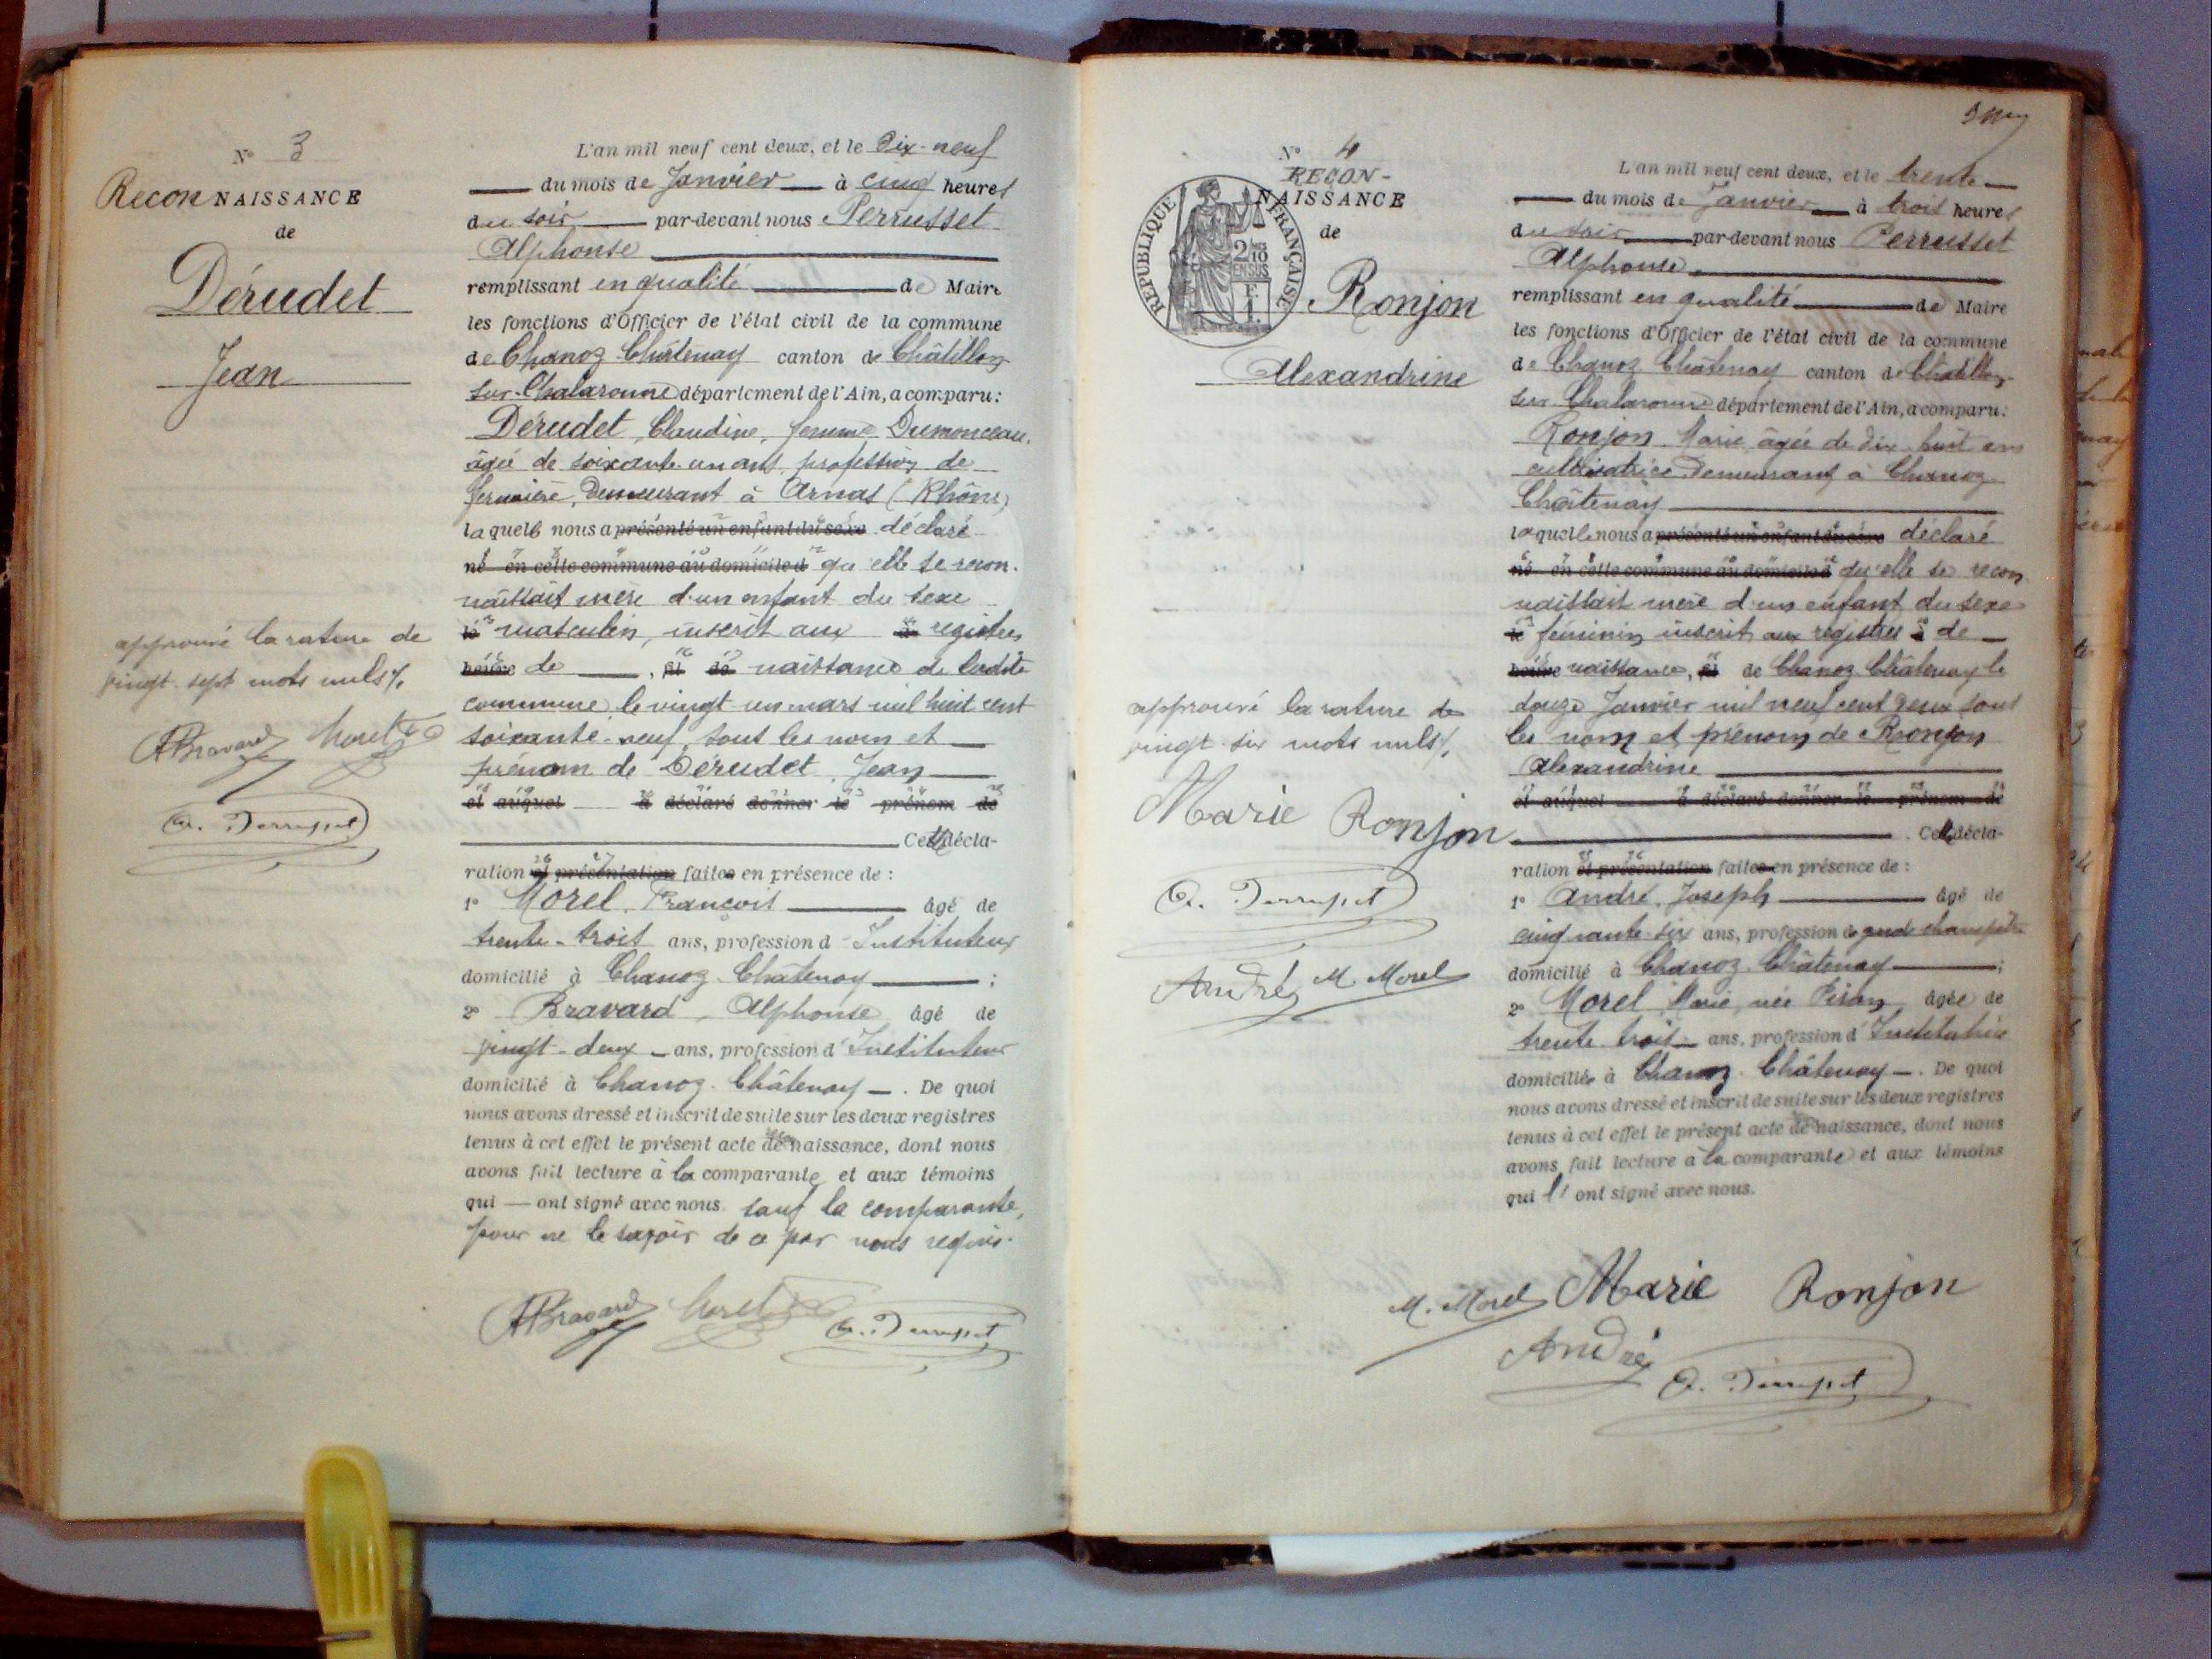 N° 3
Recon NAISSANCE
de
Dérudet
Jean
L'an mil neuf cent deux, et le dix-neuf
du mois de Janvier à cinq heures
du soir par-devant nous Perrusset
Alphonse
remplissant en qualité de Maire
les fonctions d'Officier de l'état civil de la commune
de Chanoz-Châtenay canton de Châtillon
sur-Chalaronne département de l'Ain, a comparu:
Dérudet, Claudine, femme Dumonceau,
âgée de soixante-un ans, profession de
fermière, demeurant à Arnas (Rhône)
laquelle nous a présenté un enfant du sexe déclaré
né en cette commune au domicile d qu'elle se recon-
naissait mère d'un enfant du sexe
le masculin, inscrit aux à registres
heure de , et de naissance de ladite
commune, le vingt-un mars mil huit cent
soixante-neuf, sous les nom et
prénom de Dérudet, Jean
et auquel a déclaré donner le prénom de
Cette décla-
ration et présentation faites en présence de :
1° Morel, François âgé de
trente-trois ans, profession d'Instituteur
domicilié à Chanoz-Châtenay ;
2° Bravard, Alphonse âgé de
vingt-deux ans, profession d'Instituteur
domicilié à Chanoz-Châtenay . De quoi
nous avons dressé et inscrit de suite sur les deux registres
tenus à cet effet le présent acte de naissance, dont nous
avons fait lecture à la comparante et aux témoins
qui — ont signé avec nous. sauf la comparante,
pour ne le savoir de ce par nous requis.
ABravard Morel A. Perrusset
approuvé la rature de
vingt-sept mots nuls./.
ABravard Morel
A. Perrusset
N° 4
RECON-
NAISSANCE
de
RÉPUBLIQUE FRANÇAISE
2 10
EN SUS
Ronjon
Alexandrine
L'an mil neuf cent deux, et le trente
du mois de Janvier à trois heures
du soir par-devant nous Perrusset
Alphonse
remplissant en qualité de Maire
les fonctions d'Officier de l'état civil de la commune
de Chanoz Châtenay canton de Châtillon-
sur-Chalaronne département de l'Ain, a comparu:
Ronjon, Marie, âgée de dix-huit ans
cultivatrice demeurant à Chanoz
Châtenay
laquelle nous a présenté un enfant du sexe déclaré
né en cette commune au domicile d qu'elle se recon-
naissait mère d'un enfant du sexe
le féminin inscrit aux registres à de
heure naissance, et de Chanoz Châtenay le
douze Janvier mil neuf cent deux sous
les nom et prénom de Ronjon
Alexandrine
et auquel a déclaré donner le prénom de
Cette décla-
ration et présentation faites en présence de :
1° André, Joseph âgé de
cinquante-six ans, profession de garde champêtre
domicilié à Chanoz-Châtenay ;
2° Morel Marie, née Piron, âgée de
trente trois ans, profession d'Institutrice
domiciliée à Chanoz-Châtenay . De quoi
nous avons dressé et inscrit de suite sur les deux registres
tenus à cet effet le présent acte de naissance, dont nous
avons fait lecture à la comparante et aux témoins
qui l' ont signé avec nous.
M. Morel Marie Ronjon
André
A. Perrusset
approuvé la rature de
vingt-six mots nuls./.
Marie Ronjon
A. Perrusset
André M. Morel